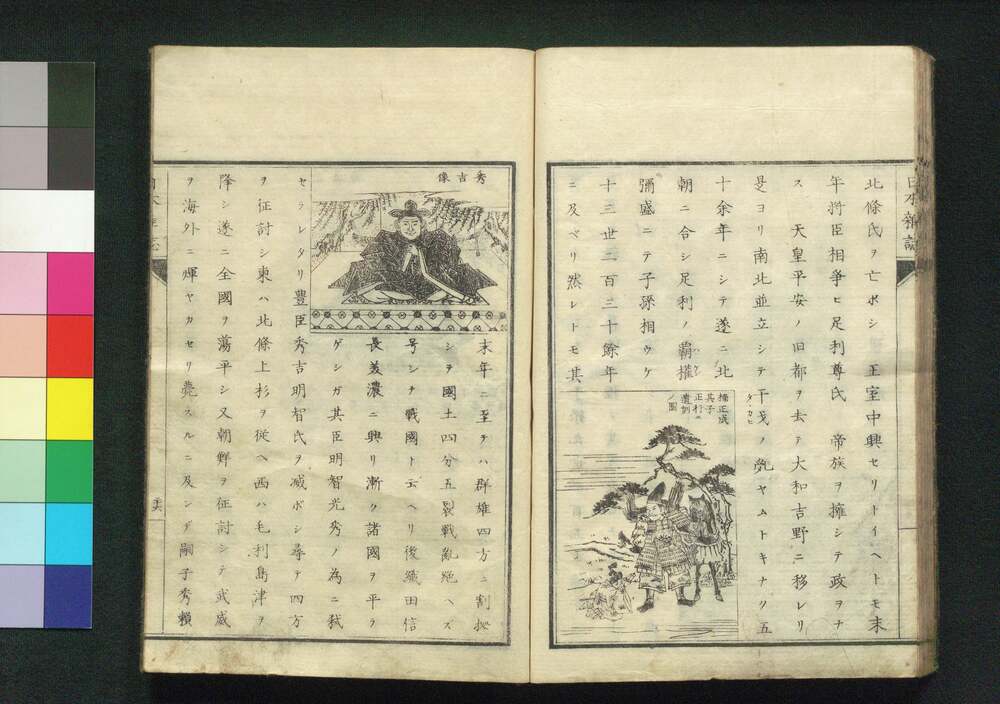 日本雜誌
北條氏ヲ亡ボシ　王室中興セリトイヘトモ末
年將臣相爭ヒ足利尊氏　帝族ヲ擁シテ政ヲナ
ス　天皇平安ノ旧都ヲ去テ大和吉野ニ移レリ
是ヨリ南北並立シテ干戈ノ尭ヤムトキナク五
タヽカヒ
十余年ニシテ遂ニ北
朝ニ合シ足利ノ覇權
彌盛ニテ子孫相ウケ
十三世二百三十餘年
ニ及ベリ然レトモ其
楠正成
其子
正行ニ
遺訓
ノ圖
秀吉像
末年ニ至テハ群雄四方ニ割拠
シヲ國土四分五裂戰亂絶ヘズ
号シテ戰國ト云ヘリ後織田信
長美濃ニ興リ漸ク諸國ヲ平ラ
ゲシガ其臣明智光秀ノ為ニ弑
セラレタリ豊臣秀吉明智氏ヲ滅ボシ尋テ四方
ヲ征討シ東ハ北條上杉ヲ従ヘ西ハ毛利島津ヲ
降シ遂ニ全國ヲ蕩平シ又朝鮮ヲ征討シテ武威
ヲ海外ニ煇ヤカセリ薨スルニ及ンデ嗣子秀頼